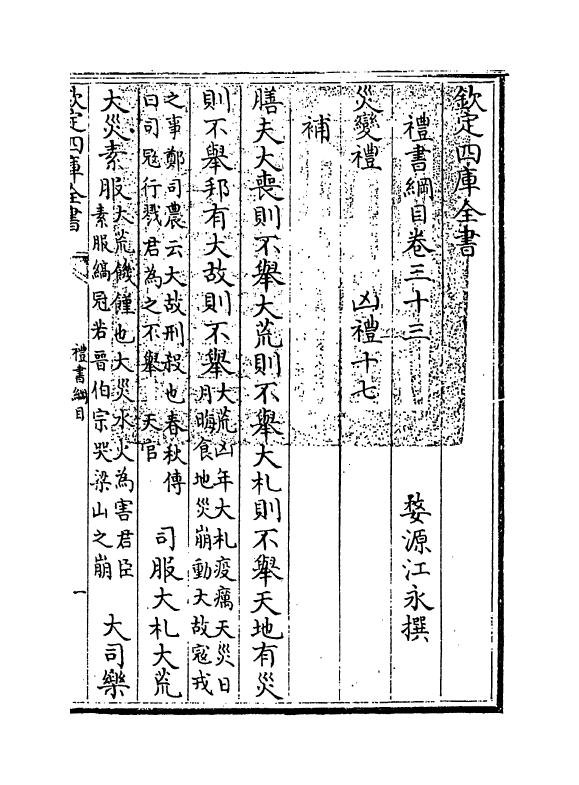 欽定四庫全書
禮書綱目卷三十三　婺源江永撰
災變禮　凶禮十七
補
膳夫大喪則不舉大荒則不舉大札則不舉天地有災
則不舉邦有大故則不舉
大荒凶年大札疫癘天災日
月晦食地災崩動大故寇戎
之事鄭司農云大故刑殺也春秋傳
曰司寇行戮君為之不舉　天官
司服大札大荒
大災素服
大荒饑饉也大災水火為害君臣
素服縞冠若晉伯宗哭梁山之崩
大司樂
欽定四庫全書
禮書綱目
一